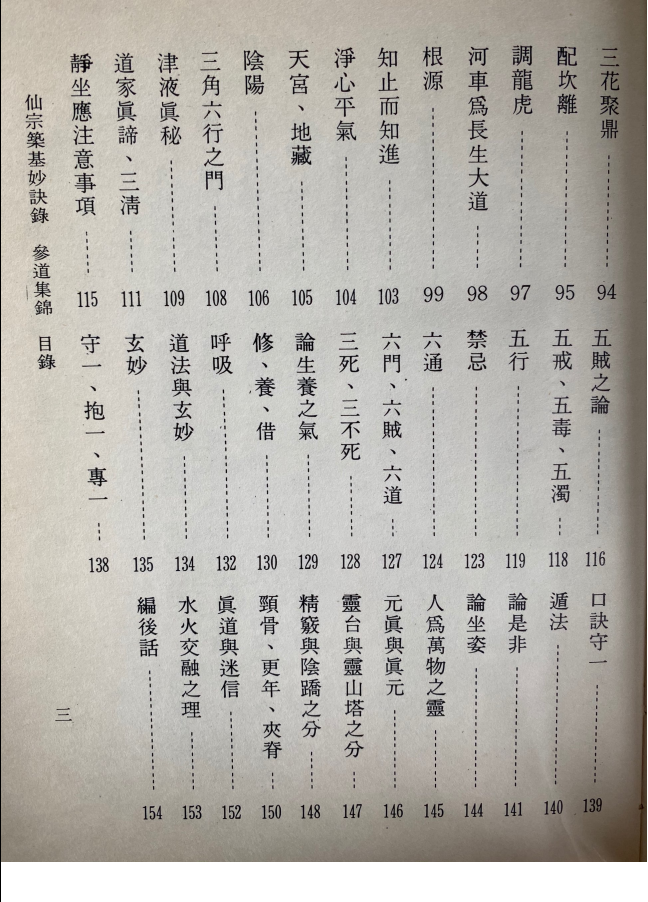 三花聚鼎 94
配坎離 95
調龍虎 97
河車爲長生大道 98
根源 99
知止而知進 103
淨心平氣 104
天宮、地藏 105
陰陽 106
三角六行之門 108
津液眞秘 109
道家眞諦、三淸 111
靜坐應注意事項 115
五賊之論 116
五戒、五毒、五濁 118
五行 119
禁忌 123
六通 124
六門、六賊、六道 127
三死、三不死 128
論生養之氣 129
修、養、借 130
呼吸 132
道法與玄妙 134
玄妙 135
守一、抱一、專一 138
口訣守一 139
遁法 140
論是非 141
論坐姿 144
人爲萬物之靈 145
元眞與眞元 146
靈台與靈山塔之分 147
精竅與陰蹻之分 148
頸骨、更年、夾脊 150
眞道與迷信 152
水火交融之理 153
編後話 154
仙宗築基妙訣錄 參道集錦 目錄
三